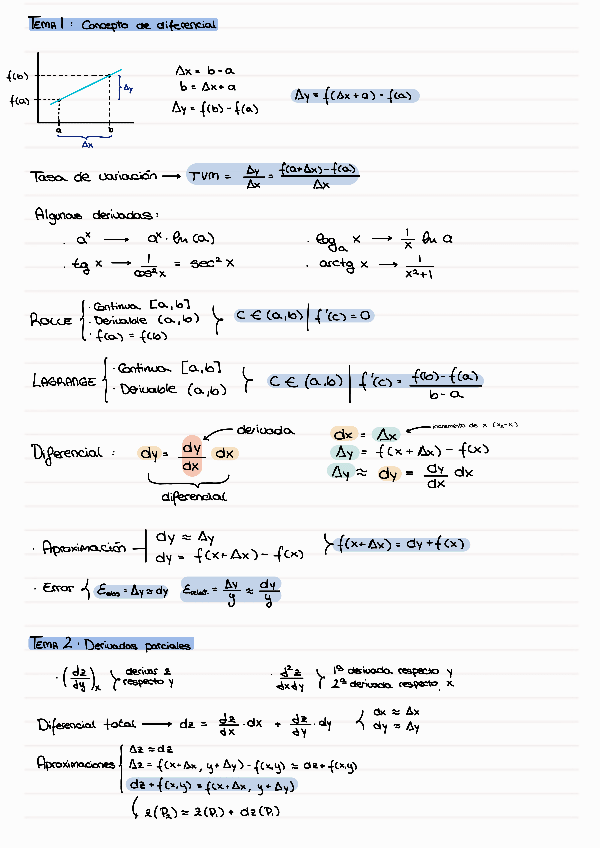 TEMA 1: Concepto de diferencial
f(b)
f(a)
Δy
a b
Δx
Δx = b - a
b = Δx + a
Δy = f(b) - f(a)
Δy = f(Δx + a) - f(a)
Tasa de variación → TVM = Δy/Δx = (f(a+Δx) - f(a))/Δx
Algunas derivadas:
· a^x → a^x · ln (a)
· log_a x → 1/x ln a
· tg x → 1/cos² x = sec² x
· arctg x → 1/(x²+1)
ROLLE { · Continua [a,b]
· Derivable (a,b)
· f(a) = f(b)
} C ∈ (a,b) | f'(c) = 0
LAGRANGE { · Continua [a,b]
· Derivable (a,b)
} C ∈ (a,b) | f'(c) = (f(b) - f(a))/(b - a)
Diferencial: dy = dy/dx dx
derivada
diferencial
dx = Δx ← incremento de x
Δy = f(x + Δx) - f(x)
Δy ≈ dy = dy/dx dx
· Aproximación | dy ≈ Δy
dy = f(x+Δx) - f(x)
} f(x+Δx) = dy + f(x)
· Error { Ɛabs = Δy ≈ dy Ɛrelat. = Δy/y ≈ dy/y
TEMA 2: Derivadas parciales
· (dz/dy)x } derivas z
respecto y
· d²z/dxdy } 1ª derivada respecto y
2ª derivada respecto x
Diferencial total → dz = dz/dx · dx + dz/dy · dy { dx ≈ Δx
dy = Δy
Aproximaciones { Δz ≈ dz
Δz = f(x+Δx, y+Δy) - f(x,y) ≈ dz + f(x,y)
dz + f(x,y) = f(x+Δx, y+Δy)
{ z(P₂) ≈ z(P₁) + dz(P₁)